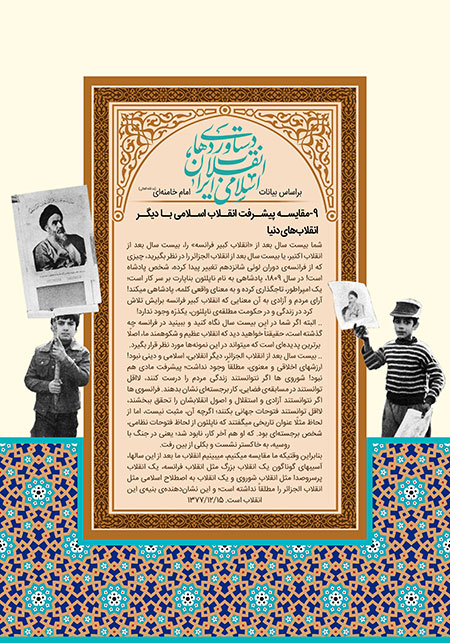 دستاوردهای
انقلاب
اسلامی ایران
براساس بیانات امام خامنه‌ای
۹-مقایسه پیشرفت انقلاب اسلامی با دیگر
انقلاب‌های دنیا
شما بیست سال بعد از «انقلاب کبیر فرانسه» را، بیست سال بعد از
انقلاب اکتبر، یا بیست سال بعد از انقلاب الجزایر را در نظر بگیرید، چیزی
که از فرانسه‌ی دوران لوئی شانزدهم تغییر پیدا کرده، شخص پادشاه
است؛ در سال ۱۸۰۹، پادشاهی به نام ناپلئون بناپارت بر سر کار است؛
یک امپراطور، تاجگذاری کرده و به معنای واقعی کلمه، پادشاهی میکند!
آرای مردم و آزادی به آن معنایی که انقلاب کبیر فرانسه برایش تلاش
کرد در زندگی و در حکومت مطلقه‌ی ناپلئون، یکذرّه وجود ندارد!
.. البته اگر شما در این بیست سال نگاه کنید و ببینید در فرانسه چه
گذشته است، حقیقتا خواهید دید که انقلاب عظیم و شکوهمند ما، اصلا
برترین پدیده‌ای است که میتواند در این نمونه‌ها مورد نظر قرار بگیرد.
.. بیست سال بعد از انقلاب الجزائر، دیگر انقلابی، اسلامی و دینی نبود!
ارزشهای اخلاقی و معنوی، مطلقا وجود نداشت؛ پیشرفت مادی هم
نبود! شوروی ها اگر نتوانستند زندگی مردم را درست کنند، لااقل
توانستند در مسابقه‌ی فضایی، کار برجسته‌ای نشان بدهند. فرانسوی ها
اگر نتوانستند آزادی و استقلال و اصول انقلابشان را تحقق ببخشند،
لااقل توانستند فتوحات جهانی بکنند؛ اگرچه آن، مثبت نیست، اما از
لحاظ مثلا عنوان تاریخی میگفتند که ناپلئون از لحاظ فتوحات نظامی،
شخص برجسته‌ای بود. که او هم آخر کار، نابود شد؛ یعنی در جنگ با
روسیه، به خاکستر نشست و بکلی از بین رفت.
بنابراین وقتیکه ما مقایسه میکنیم، میبینیم انقلاب ما بعد از این سالها،
آسیبهای گوناگون یک انقلاب بزرگ مثل انقلاب فرانسه، یک انقلاب
پرسروصدا مثل انقلاب شوروی و یک انقلاب به اصطلاح اسلامی مثل
انقلاب الجزائر را مطلقاً نداشته است؛ و این نشان‌دهنده‌ی بنیه‌ی این
انقلاب است. ۱۳۷۷/۱۲/۱۵